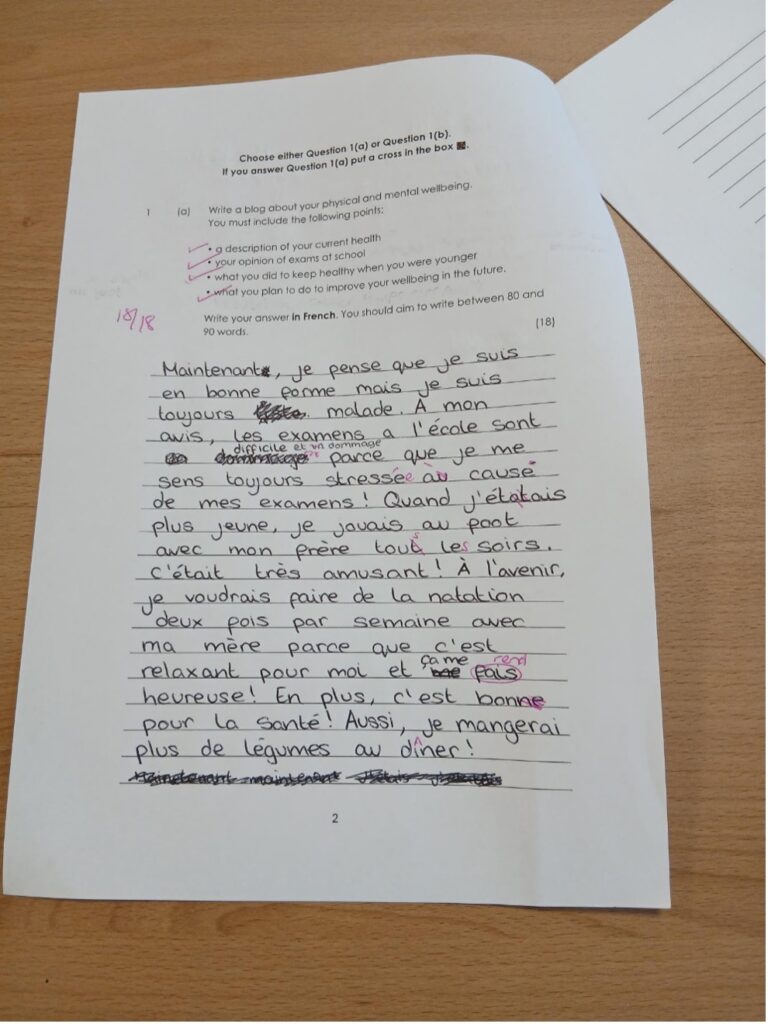 Choose either Question 1(a) or Question 1(b).
If you answer Question 1(a) put a cross in the box ☒.
1 (a) Write a blog about your physical and mental wellbeing.
You must include the following points:
• a description of your current health
• your opinion of exams at school
• what you did to keep healthy when you were younger
• what you plan to do to improve your wellbeing in the future.
Write your answer in French. You should aim to write between 80 and
90 words.
(18)
18/18
Maintenant, je pense que je suis
en bonne forme mais je suis
toujours malade. A mon
avis, les examens a l'école sont
difficile et un dommage
parce que je me
sens toujours stressée au cause
de mes examens! Quand j'étatais
plus jeune, je jouais au foot
avec mon frère touts les soirs.
c'était très amusant! À l'avenir,
je voudrais faire de la natation
deux fois par semaine avec
ma mère parce que c'est
relaxant pour moi et ça me fais rend
heureuse! En plus, c'est bonne
pour la santé! Aussi, je mangerai
plus de légumes au dîner!
2